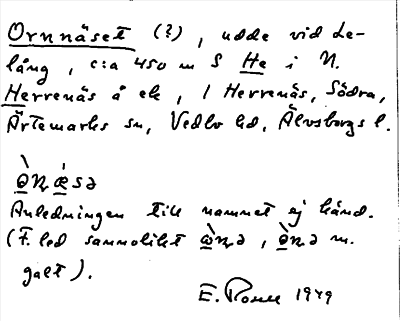 Ornnäset (?), udde vid Le-
lång, c:a 450 m S He i N.
Herrenäs å ek, 1 Herrenäs, Södra,
Ärtemarks sn, Vedbo hd, Älvsborgs l.
Anledningen till namnet ej känd.
(F. led sannolikt m.
galt).
E. 1949